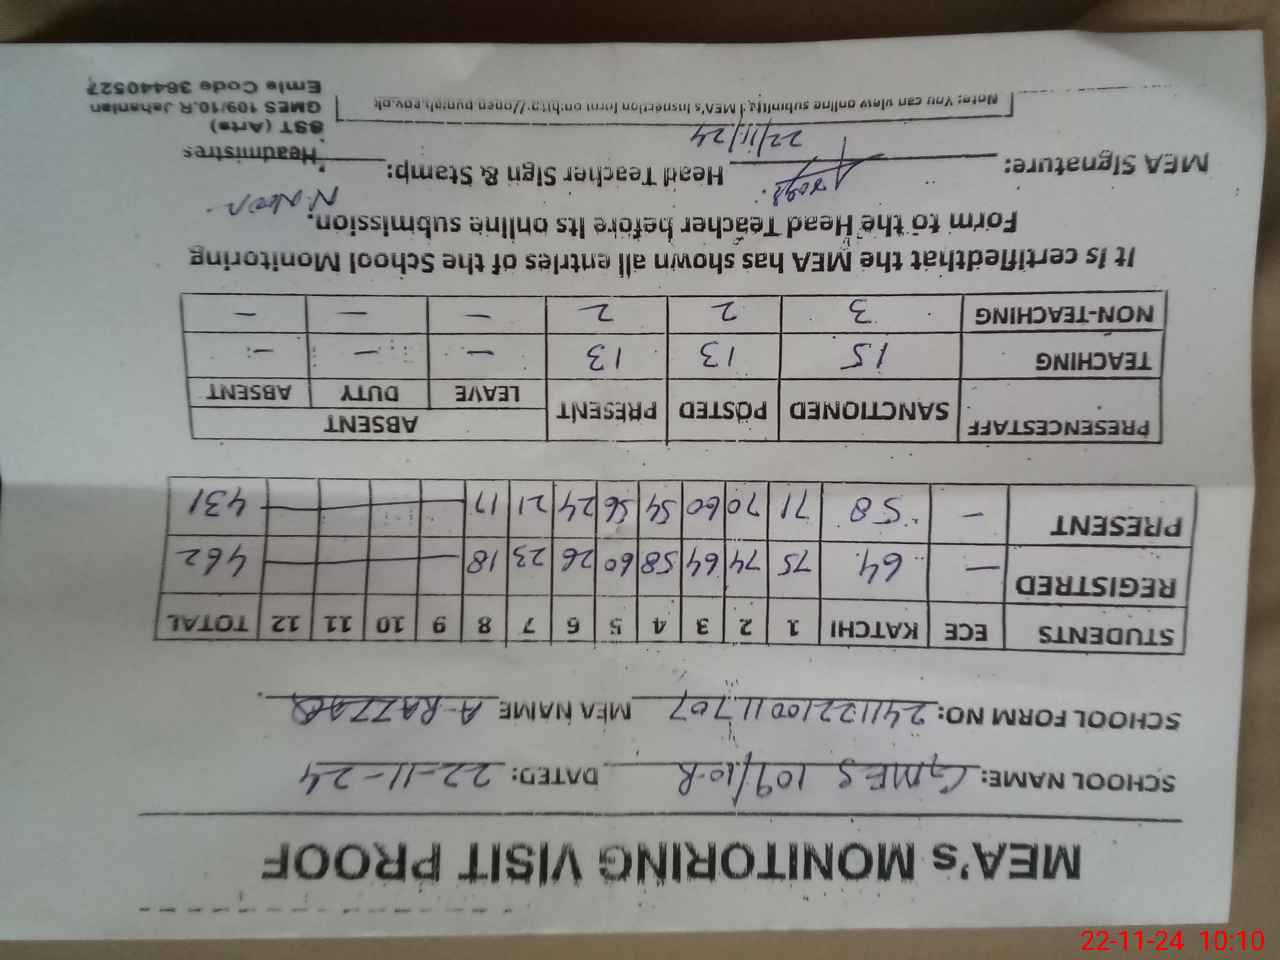 MEA's MONITORING VISIT PROOF
SCHOOL NAME: GMES 109/10-R DATED: 22-11-24
SCHOOL FORM NO: 24112210011707 MEA NAME A-RAZZAQ
STUDENTS ECE KATCHI 1 2 3 4 5 6 7 8 9 10 11 12 TOTAL
REGISTRED — 64 75 74 64 58 60 26 23 18 462
PRESENT — 58 71 70 60 54 56 24 21 17 431
PRESENCESTAFF SANCTIONED POSTED PRESENT ABSENT
LEAVE DUTY ABSENT
TEACHING 15 13 13 — — —
NON-TEACHING 3 2 2 — — —
It is certifiedthat the MEA has shown all entries of the School Monitoring
Form to the Head Teacher before its online submission.
MEA Signature: Head Teacher Sign & Stamp: N.Noor
22/11/24
Headmistres
SST (Arts)
GMES 109/10.R Jahanian
Emis Code 36440527
Note: You can view online submitted MEA's inspection form on http://open.punjab.gov.pk
22-11-24 10:10